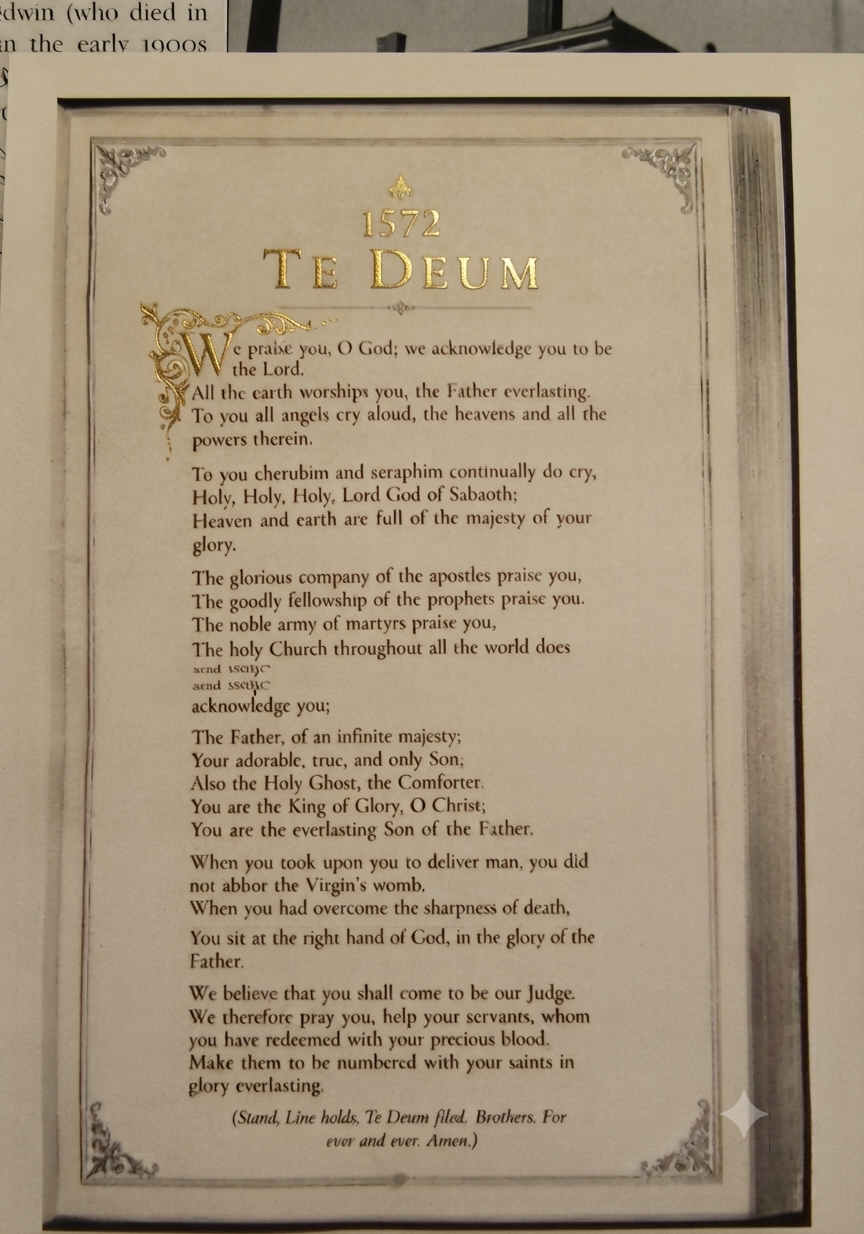 dwin (who died in
n the early 1900s
1572
TE DEUM
We praise you, O God; we acknowledge you to be
the Lord.
All the earth worships you, the Father everlasting.
To you all angels cry aloud, the heavens and all the
powers therein.
To you cherubim and seraphim continually do cry,
Holy, Holy, Holy, Lord God of Sabaoth;
Heaven and earth are full of the majesty of your
glory.
The glorious company of the apostles praise you,
The goodly fellowship of the prophets praise you.
The noble army of martyrs praise you,
The holy Church throughout all the world does
send
send
acknowledge you;
The Father, of an infinite majesty;
Your adorable, true, and only Son;
Also the Holy Ghost, the Comforter.
You are the King of Glory, O Christ;
You are the everlasting Son of the Father.
When you took upon you to deliver man, you did
not abbor the Virgin's womb.
When you had overcome the sharpness of death,
You sit at the right hand of God, in the glory of the
Father.
We believe that you shall come to be our Judge.
We therefore pray you, help your servants, whom
you have redeemed with your precious blood.
Make them to be numbered with your saints in
glory everlasting.
(Stand, Line holds, Te Deum filed. Brothers. For
ever and ever. Amen.)